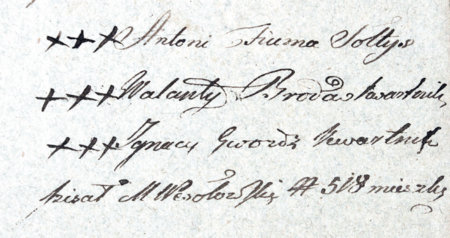 +++ Antoni Fiuma Sołtys
+++ Walanty Broda kwartnik
+++ Ignacy Gwordz kwartnik
pisał M Wesołowski 518